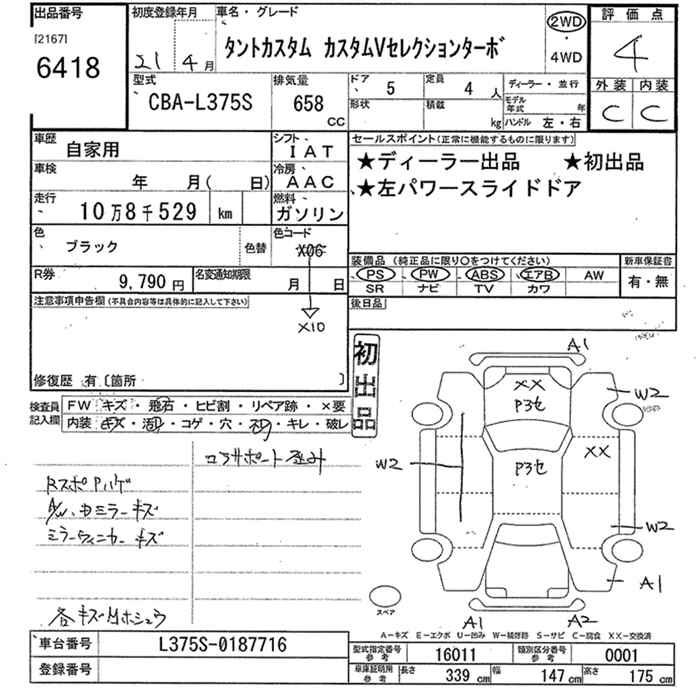 出品番号
[2167]
6418
初度登録年月
21年 4月
車名・グレード
タントカスタム カスタムVセレクションターボ
2WD
・
4WD
評価点
4
外装 内装
C C
型式
CBA-L375S
排気量
658
CC
ドア
5
定員
4 人
ディーラー・並行
形状
積載
kg
モデル年式 年
ハンドル 左・右
車歴
自家用
シフト
IAT
車検
年 月( 日)
冷房
AAC
走行
10万8千529 km
燃料
ガソリン
色
ブラック
色替
色コード
X06
X10
R券
9,790 円
名変通知期限
月 日
セールスポイント(正常に機能するものに限ります)
★ディーラー出品 ★初出品
★左パワースライドドア
装備品 (純正品に限り○をつけてください)
PS PW ABS エアB AW
SR ナビ TV カワ
新車保証書
有・無
後日品
注意事項申告欄(不具合内容等は具体的に記入して下さい)
修復歴 有〔箇所 〕
初出品
検査員記入欄
FW キズ・飛石・ヒビ割・リペア跡・×要
内装 キズ・汚・コゲ・穴・ネジ・キレ・破レ
コアサポート歪み
RスポPハゲ
A/W、ドミラーキズ
ミラーウィンカーキズ
各キズ有ホシュウ
A1
XX
P3セ
W2
XX
P3セ
W2
W2
A1
A1
A2
スペア
A-キズ E-エクボ U-凹み W-補修跡 S-サビ C-腐食 XX-交換済
車台番号
L375S-0187716
登録番号
型式指定番号
参考
16011
類別区分番号
参考
0001
車庫証明用
参考
長さ
339 cm
幅
147 cm
高さ
175 cm